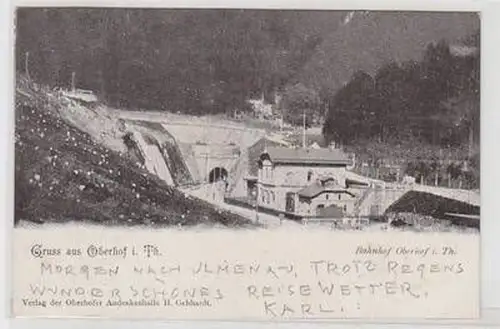 Gruss aus Oberhof i. Th.
Bahnhof Oberhof i. Th.
MORGEN NACH ILMENAU, TROTZ REGENS
WUNDERSCHÖNES REISEWETTER.
KARL.
Verlag der Oberhofer Andenkenhalle H. Gebhardt.